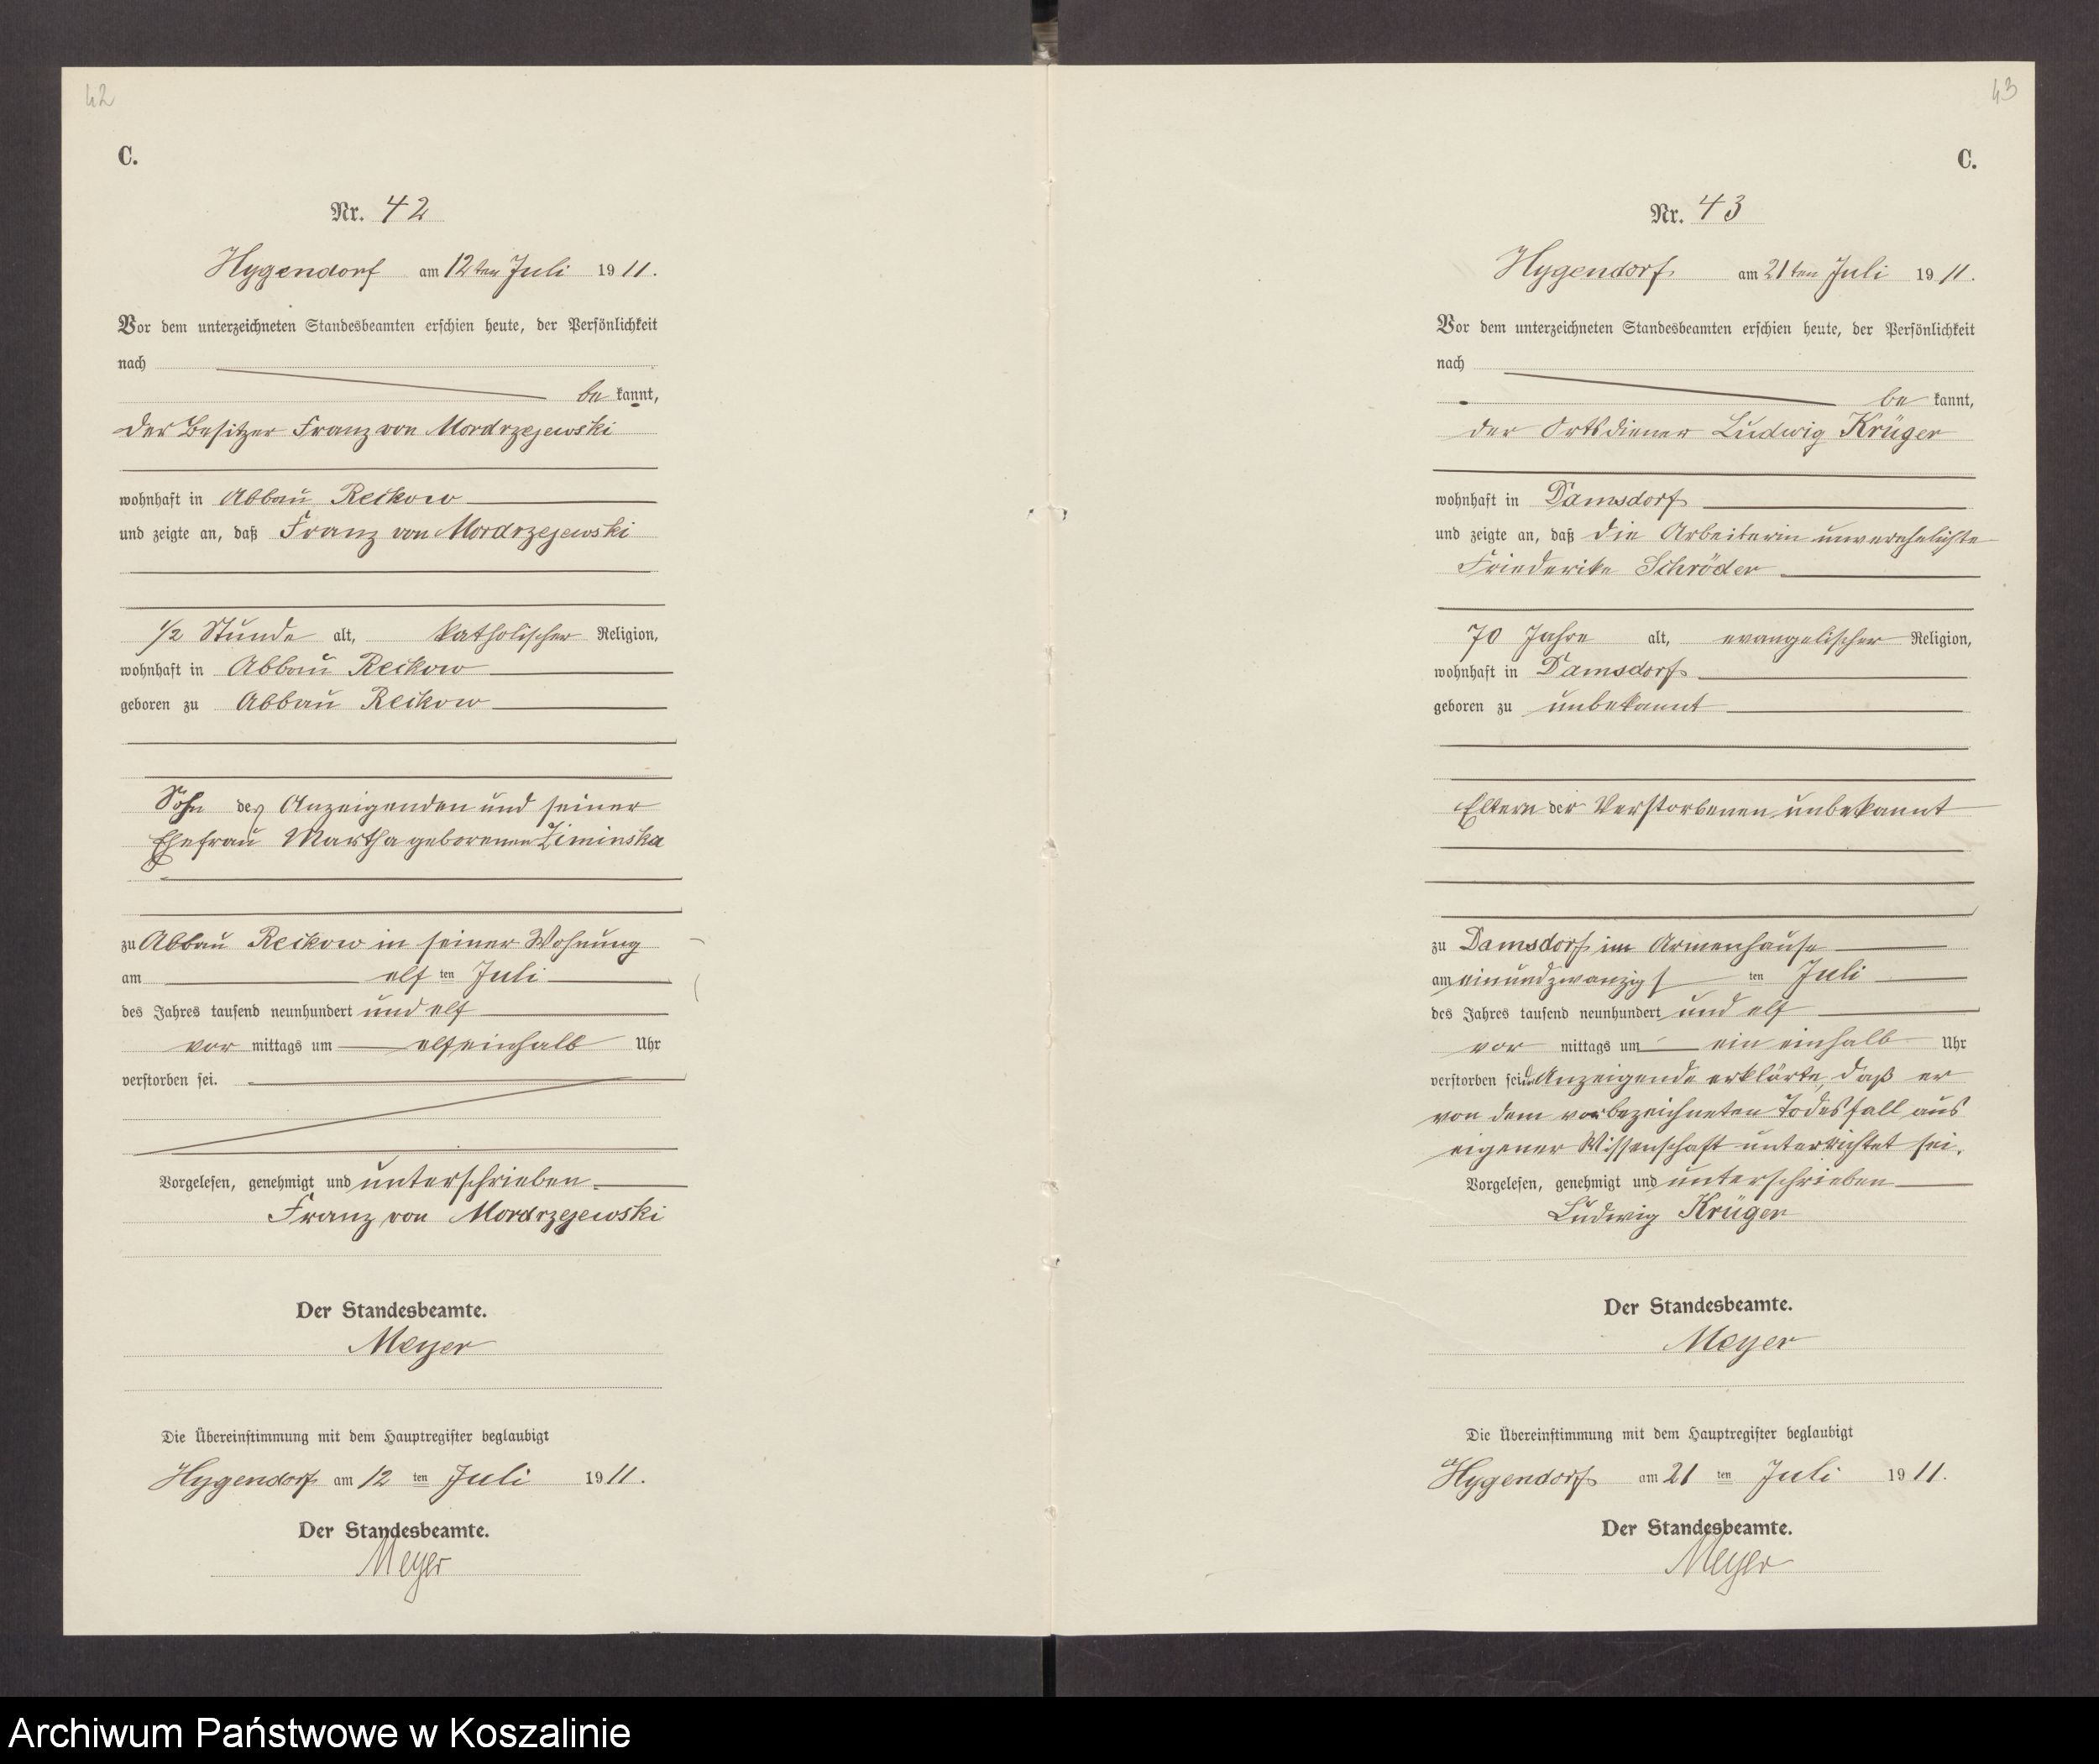 42
C.
Nr. 42
Hygendorf am 12ten Juli 1911.
Vor dem unterzeichneten Standesbeamten erschien heute, der Persönlichkeit
nach
be kannt,
der Besitzer Franz von Mordrzejewski
wohnhaft in Abbau Reckow
und zeigte an, daß Franz von Mordrzejewski
1/2 Stunde alt, katholischer Religion,
wohnhaft in Abbau Reckow
geboren zu Abbau Reckow
Sohn des Anzeigenden und seiner
Ehefrau Martha geborenen Ziminska
zu Abbau Reckow in seiner Wohnung
am elf ten Juli
des Jahres tausend neunhundert und elf
vor mittags um elfeinhalb Uhr
verstorben sei.
Vorgelesen, genehmigt und unterschrieben
Franz von Mordrzejewski
Der Standesbeamte.
Meyer
Die Übereinstimmung mit dem Hauptregister beglaubigt
Hygendorf am 12 ten Juli 1911.
Der Standesbeamte.
Meyer
43
C.
Nr. 43
Hygendorf am 21ten Juli 1911.
Vor dem unterzeichneten Standesbeamten erschien heute, der Persönlichkeit
nach
be kannt,
der Ortsdiener Ludwig Krüger
wohnhaft in Damsdorf
und zeigte an, daß die Arbeiterin unverehelichte
Friederike Schröder
70 Jahre alt, evangelischer Religion,
wohnhaft in Damsdorf
geboren zu unbekannt
Eltern der Verstorbenen unbekannt
zu Damsdorf im Armenhause
am einundzwanzigs ten Juli
des Jahres tausend neunhundert und elf
vor mittags um ein einhalb Uhr
verstorben sei. Der Anzeigende erklärte, daß er
von dem vorbezeichneten Todesfall aus
eigener Wissenschaft unterrichtet sei.
Vorgelesen, genehmigt und unterschrieben
Ludwig Krüger
Der Standesbeamte.
Meyer
Die Übereinstimmung mit dem Hauptregister beglaubigt
Hygendorf am 21 ten Juli 1911.
Der Standesbeamte.
Meyer
Archiwum Państwowe w Koszalinie